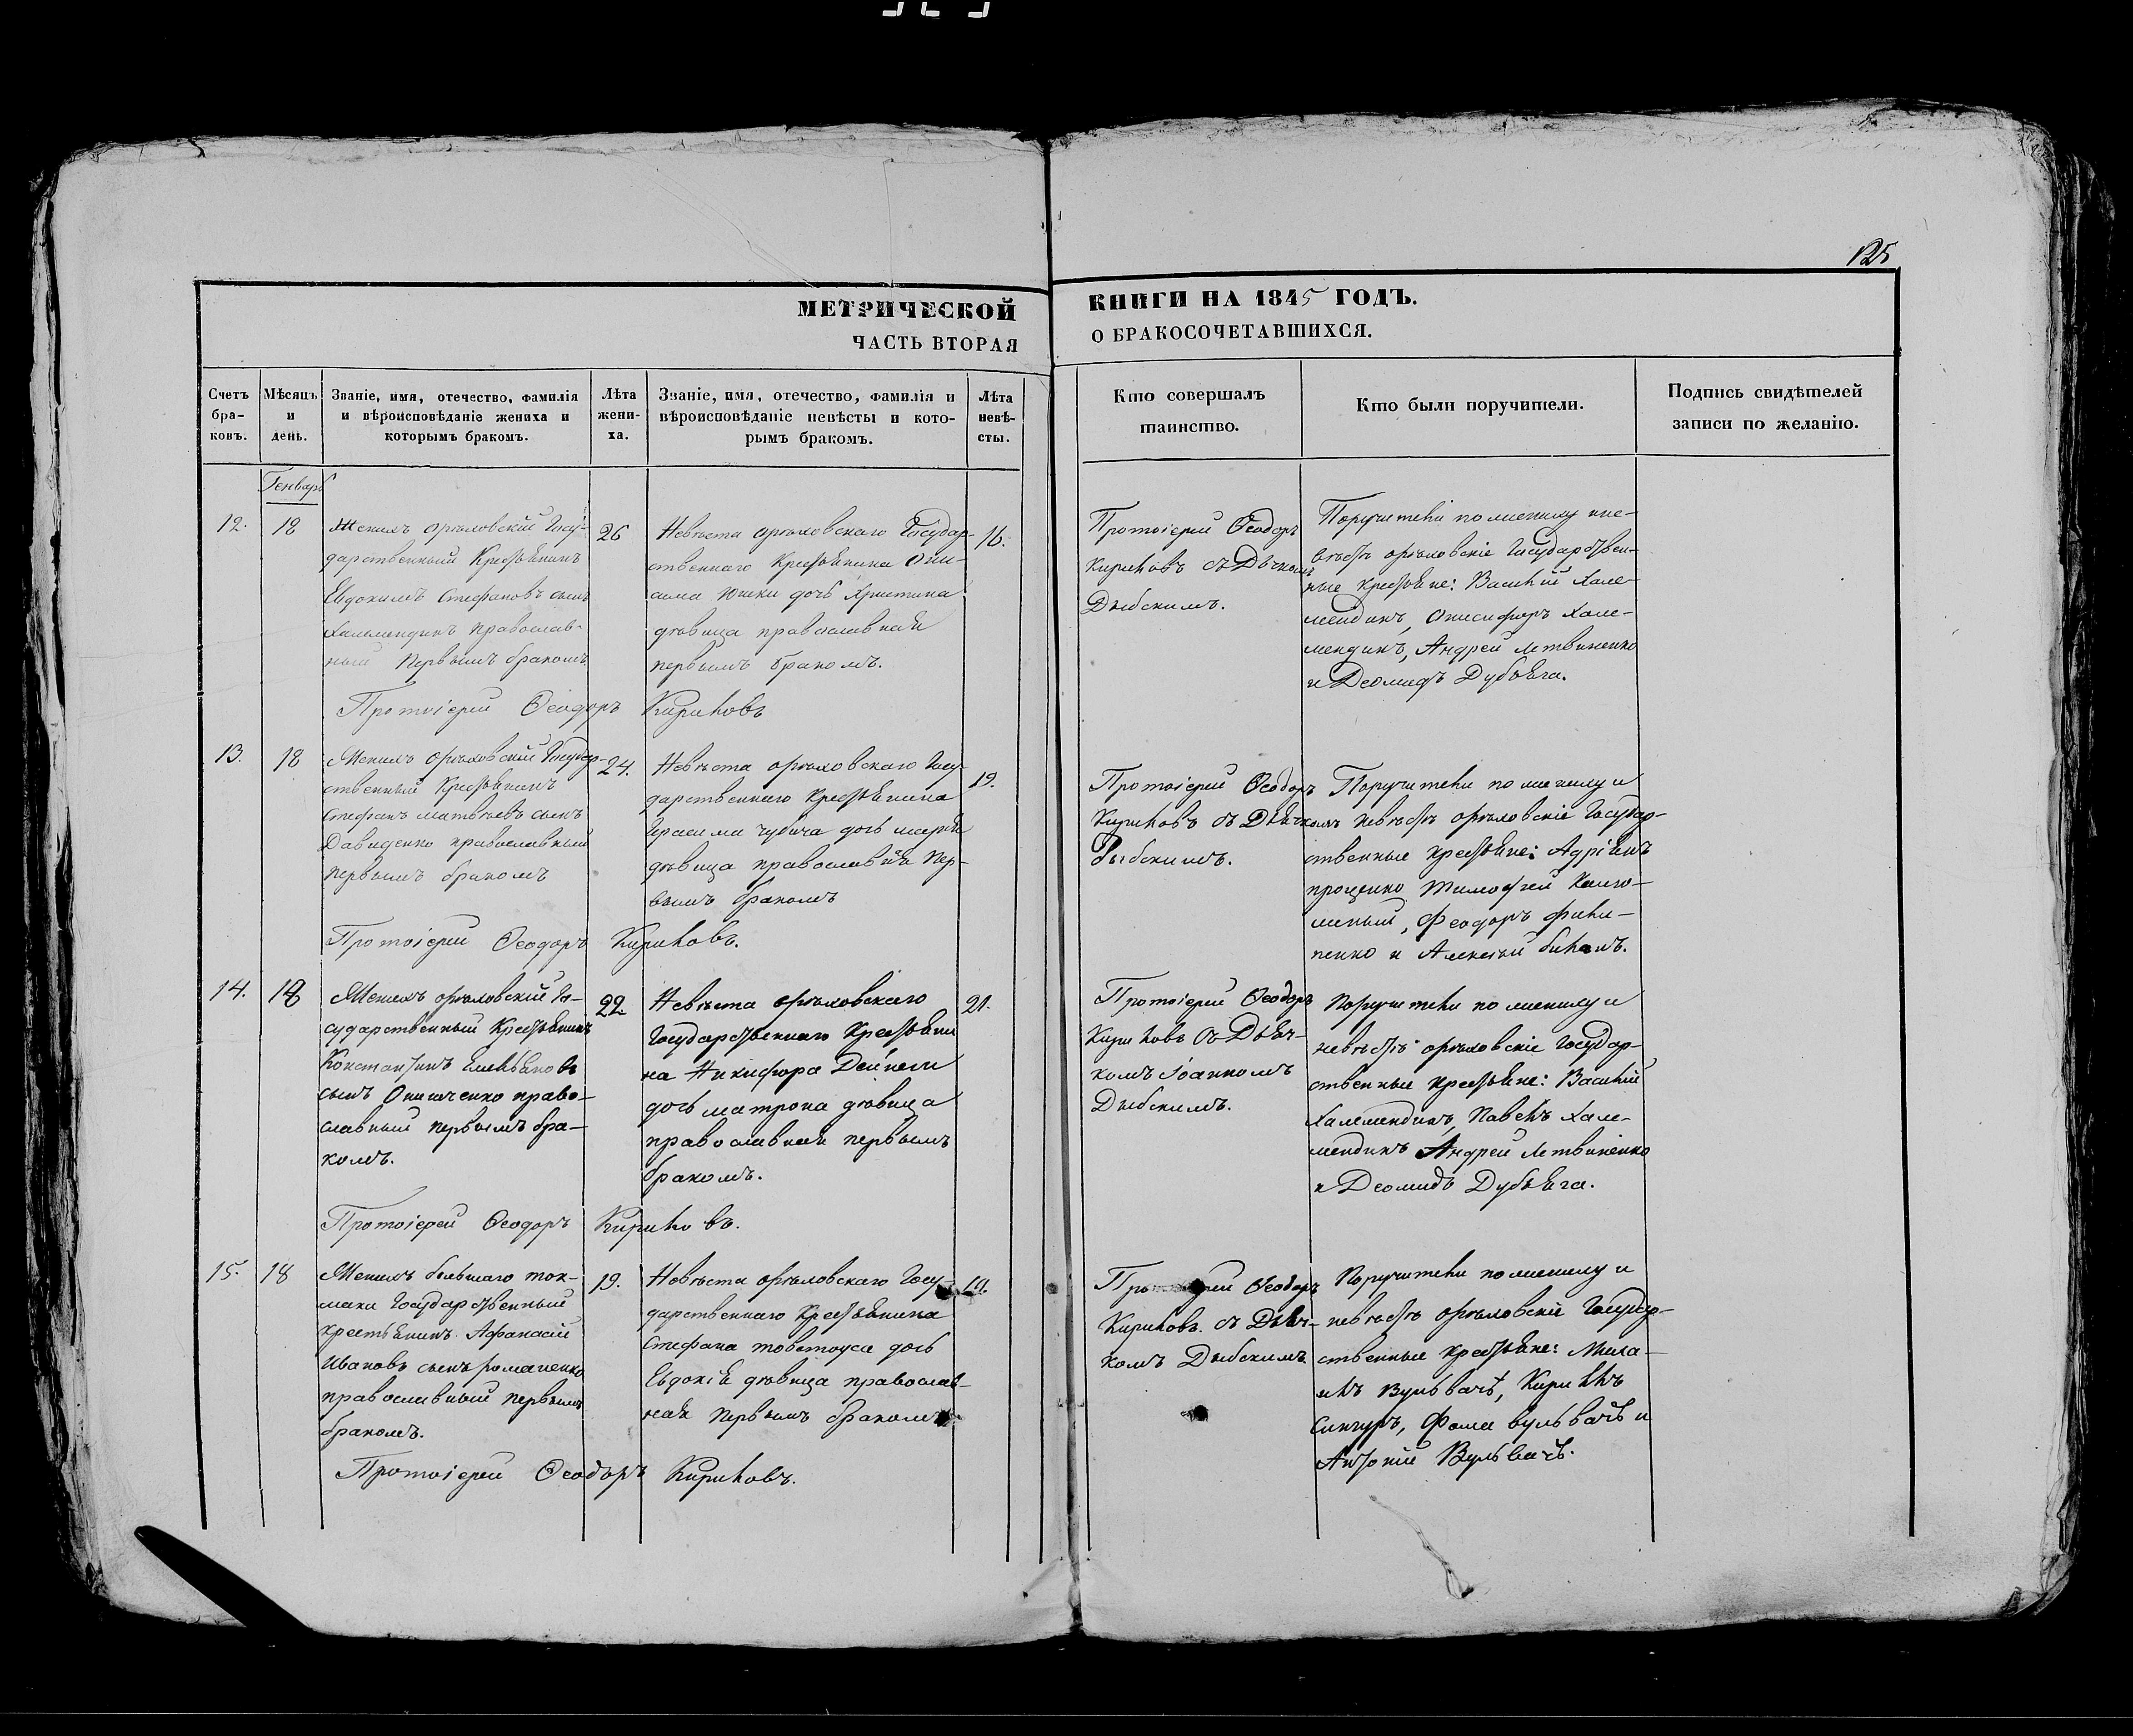 125
МЕТРИЧЕСКОЙ КНИГИ НА 1845 ГОДЪ.
ЧАСТЬ ВТОРАЯ О БРАКОСОЧЕТАВШИХСЯ.
Счетъ бра-ковъ.
Мѣсяцъ и день.
Званіе, имя, отечество, фамилія
и вѣроисповѣданіе жениха и
которымъ бракомъ.
Лѣта жени-ха.
Званіе, имя, отечество, фамилія и
вѣроисповѣданіе невѣсты и кото-
рымъ бракомъ.
Лѣта невѣ-сты.
Кто совершалъ
таинство.
Кто были поручители.
Подпись свидѣтелей
записи по желанію.
Генварь
12.
18
Женихъ орѣховскій Госу-
дарственный Крестьянинъ
Евдокимъ Стефановъ сынъ
Халемендикъ православ-
ный первымъ бракомъ
26
Невѣста орѣховскаго Государ-
ственнаго Крестьянина Они-
сима дочь Христина
дѣвица православная
первымъ бракомъ.
16.
Протоіерей Ѳеодоръ
Кириловъ съ
Дыбскимъ.
Поручители по жениху и не-
вѣстѣ орѣховскіе Государствен-
ные крестьяне: Василій Хале-
мендикъ, Онисифоръ Хале-
мендикъ, Андрей Литвиненко
и Деомидъ Дубяга.
Протоіерей Ѳеодоръ Кириловъ
13.
18
Женихъ орѣховскій Государ-
ственный Крестьянинъ
Стефанъ Матвѣевъ сынъ
Давиденко православный
первымъ бракомъ
24.
Невѣста орѣховскаго Госу-
дарственнаго Крестьянина
Герасима Чубича дочь Марія
дѣвица православная пер-
вымъ бракомъ
19.
Протоіерей Ѳеодоръ
Кириловъ съ Дьячкомъ
Дыбскимъ.
Поручители по жениху и
невѣстѣ орѣховскіе Государ-
ственные крестьяне: Адріянъ
проценко Тимофей
Феодоръ фили-
пенко и Алексѣй
Протоіерей Ѳеодоръ Кириловъ.
14.
18
Женихъ орѣховскій Го-
сударственный Крестьянинъ
Константинъ Емельяновъ
сынъ право-
славный первымъ бра-
комъ.
22.
Невѣста орѣховскаго
Государственнаго Крестьяни
на Никифора Дейнеги
дочь Матрона дѣвица
православная первымъ
бракомъ.
21.
Протоіерей Ѳеодоръ
Кириловъ съ Дьяч-
комъ Іоанномъ
Дыбскимъ.
Поручители по жениху и
невѣстѣ орѣховскіе Государ-
ственные крестьяне: Василій
Халемендикъ, Павелъ Хале-
мендикъ Андрей Литвиненко
и Деомидъ Дубяга.
Протоіерей Ѳеодоръ Кириловъ.
15.
18
Женихъ большаго ток-
мака Государственный
крестьянинъ Афанасій
Ивановъ сынъ романенко
православный первымъ
бракомъ.
19.
Невѣста орѣховскаго Госу-
дарственнаго Крестьянина
Стефана товстоуса дочь
Евдокія дѣвица православ-
ная первымъ бракомъ.
19.
Протоіерей Ѳеодоръ
Кириловъ съ Дьяч-
комъ Дыбскимъ
Поручители по жениху и
невѣстѣ орѣховскіе Государ-
ственные крестьяне: Миха-
илъ Вульвачъ, Кириллъ
Сингуръ, Фома вульвачъ и
Антоній Вульвачъ.
Протоіерей Ѳеодоръ Кириловъ.